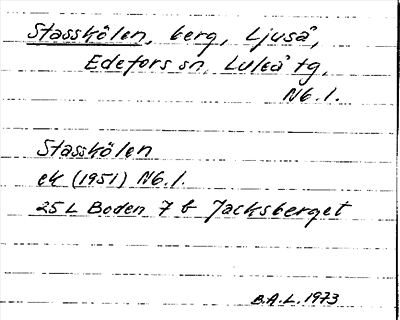 Stasskölen, berg, Ljuså,
Edefors sn, Luleå tg,
Nb.l.
Stasskölen
ek (1951) Nb.l.
25L Boden 7 b Jacksberget
B.A.L. 1973